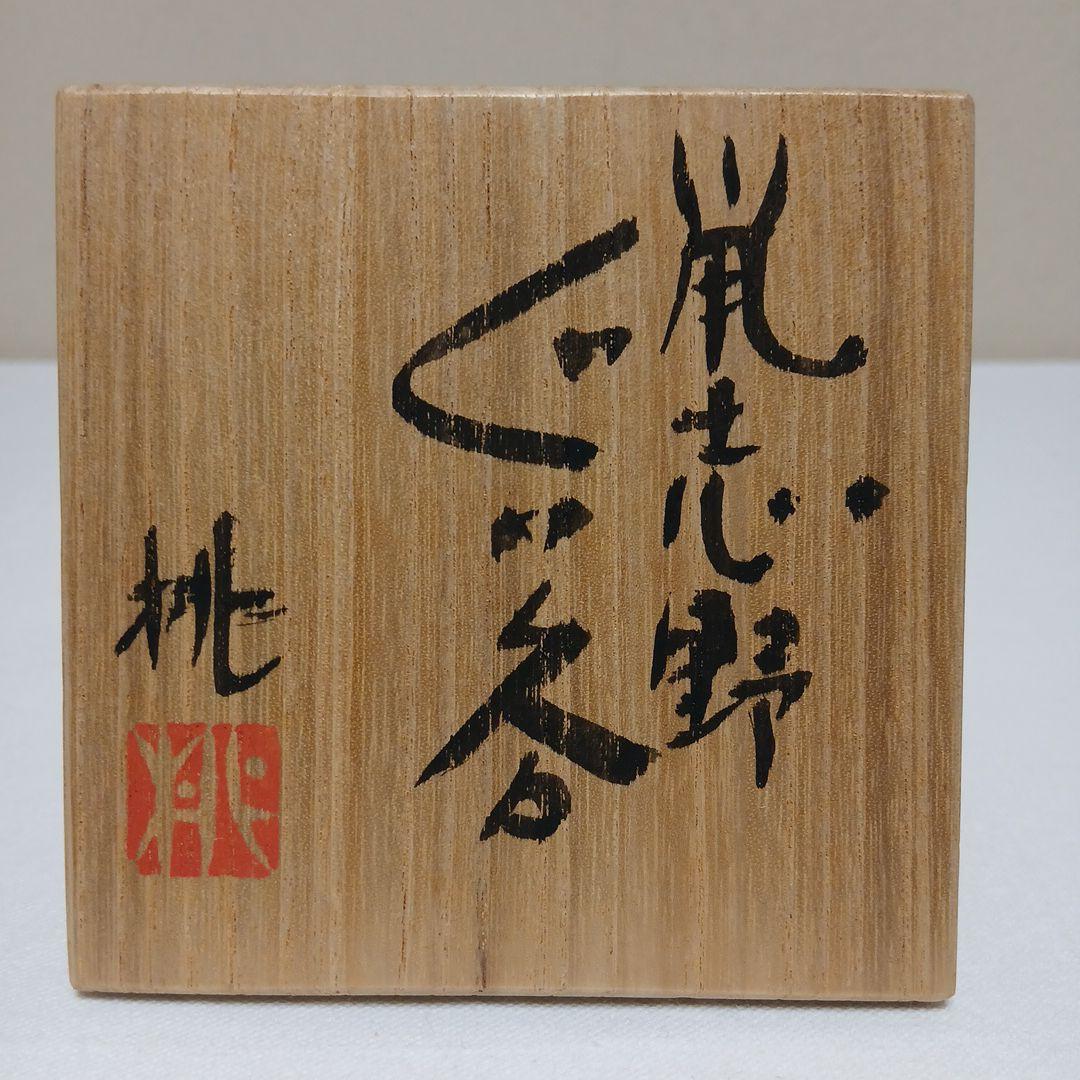 鼡志野
ぐい呑
桃
桃